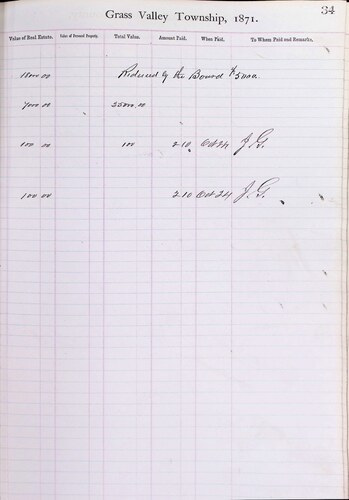 34
Grass Valley Township, 1871.
Value of Real Estate. Value of Personal Property. Total Value. Amount Paid. When Paid. To Whom Paid and Remarks.
Reduced by the Board $5000
7000 00 35000.00
100 00 100 2.10 Oct 24 J. G.
100 00 2.10 Oct 24 J. G.